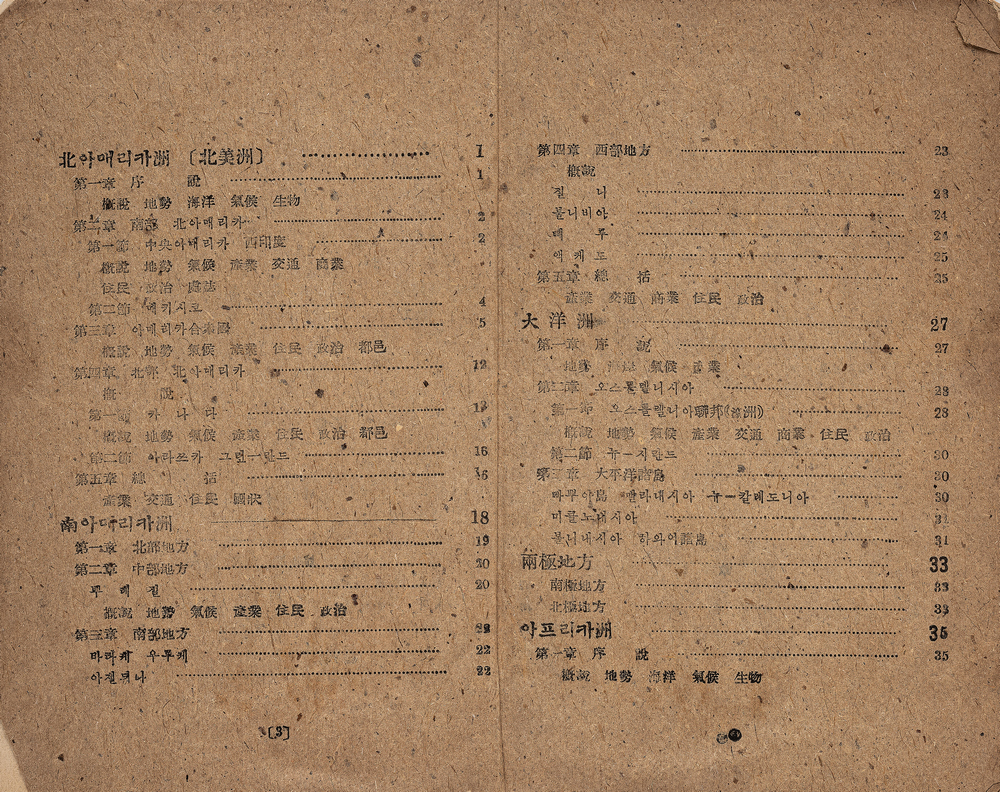 北아메리카洲 〔北美洲〕 1
第一章 序 說 1
槪說 地勢 海洋 氣候 生物
第二章 南部 北아메리카 2
第一節 中央아메리카 西印度 2
槪說 地勢 氣候 產業 交通 商業
住民 政治 處誌
第二節 메키시코 4
第三章 아메리카合衆國 5
槪說 地勢 氣候 產業 住民 政治 都邑
第四章 北部 北아메리카 12
槪 說
第一節 카나다 12
槪說 地勢 氣候 產業 住民 政治 都邑
第二節 아라쓰카 그린一란드 16
第五章 總 括 16
產業 交通 住民 國狀
南아메리카洲 18
第一章 北部地方 19
第二章 中部地方 20
뿌레질 20
槪說 地勢 氣候 產業 住民 政治
第三章 南部地方 22
바라퀘 우루퀘 22
아젠띄나 22
〔3〕
第四章 西部地方 23
槪說
질 니 23
볼니비아 24
페 루 24
에케도 25
第五章 總 括 25
產業 交通 商業 住民 政治
大洋洲 27
第一章 序 說 27
地勢 海岸 氣候 產業
第二章 오스틀렐니시아 28
第一節 오스틀렐니아聯邦(濠洲) 28
槪說 地勢 氣候 產業 交通 商業 住民 政治
第二節 뉴一시란드 30
第三章 大平洋諸島 30
파푸아島 멜라네시아 뉴一칼레도니아 30
미클로네시아 31
폴니네시아 하와이諸島 31
兩極地方 33
南極地方 33
北極地方 33
아프리카洲 35
第一章 序 說 35
槪說 地勢 海洋 氣候 生物